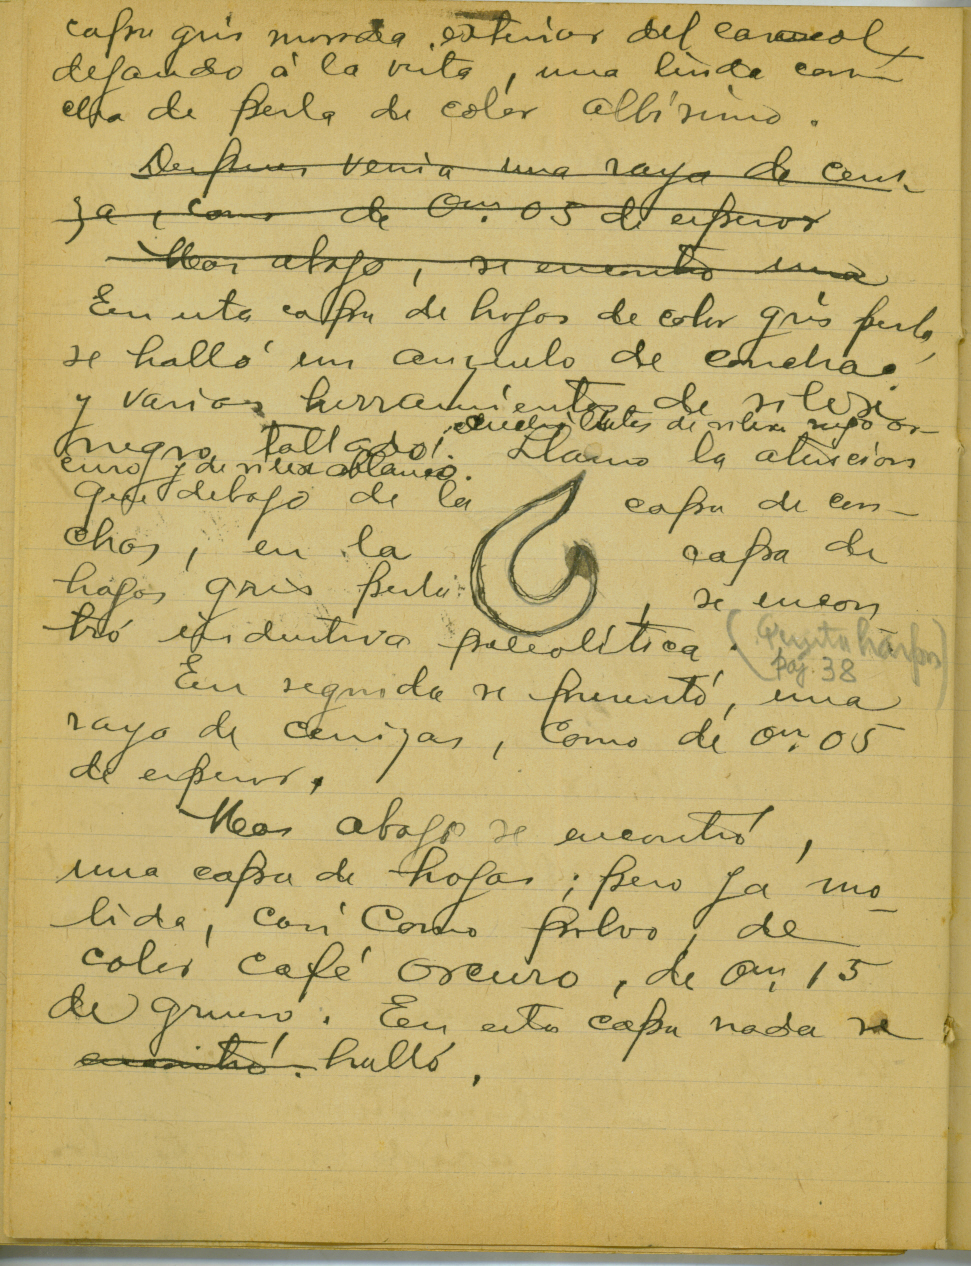 capa gris morada exterior del caracol,
dejando á la vista, una linda con-
cha de perla de color albísimo.
Despues venia una raya de ceni-
za, como de 0m.05 de espesor
Mas abajo, se encontró una
En esta capa de hojas de color gris perla,
se halló un anzuelo de concha
y varias herramientas de silex
negro tallado; de silex rojo os-
curo y de silex blanco. Llama la atencion
que debajo de la capa de con-
chas, en la capa de
hojas gris perla, se encon
tró industria paleolítica.
pag. 38
En seguida se presentó, una
raya de cenizas, como de 0m.05
de espesor.
Mas abajo se encontró,
una capa de hojas; pero ya mo-
lida, casi como polvo, de
color café oscuro, de 0m.15
de grueso. En esta capa nada se
encontró. halló.